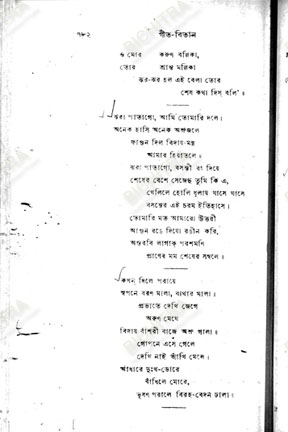 ৭৮২ গীত-বিতান
ও মোর করুণ বল্লিকা,
তোর শ্রান্ত মল্লিকা
ঝর-ঝর হল এই বেলা তোর
শেষ কথা দিস্ বলি’॥
ঝরা পাতাগো, আমি তোমারি দলে।
অনেক হাসি অনেক অশ্রুজলে
ফাগুন দিল বিদায়-মন্ত্র
আমার হিয়াতলে॥
ঝরা পাতাগো, বসন্তী রং দিয়ে
শেষের বেশে সেজেছ তুমি কি এ,
খেলিলে হোলি ধূলায় ঘাসে ঘাসে
বসন্তের এই চরম ইতিহাসে।
তোমারি মত আমারো উত্তরী
আগুন রঙে দিয়ো রঙীন করি,
অস্তরবি লাগাক্ পরশমণি
প্রাণের মম শেষের সম্বলে॥
কখন দিলে পরায়ে
স্বপনে বরণ মালা, ব্যথার মালা।
প্রভাতে দেখি জেগে
অরুণ মেঘে
বিদায় বাঁশরী বাজে অশ্রু গালা॥
গোপনে এসে গেলে
দেখি নাই আঁখি মেলে।
আঁধারে দুঃখ-ডোরে
বাঁধিলে মোরে,
ভূষণ পরালে বিরহ-বেদন ঢালা॥